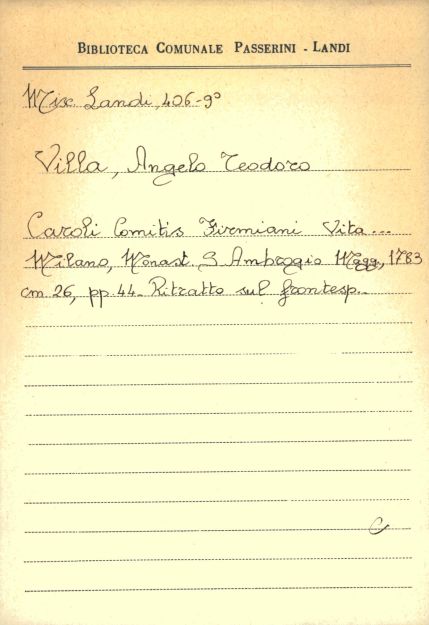 BIBLIOTECA COMUNALE PASSERINI - LANDI
Misc. Landi, 406-9°
Villa, Angelo Teodoro
Caroli Comitis Firmiani Vita...
Milano, Monast. S. Ambrogio Magg., 1783
cm 26, pp. 44. Ritratto sul frontesp..
C